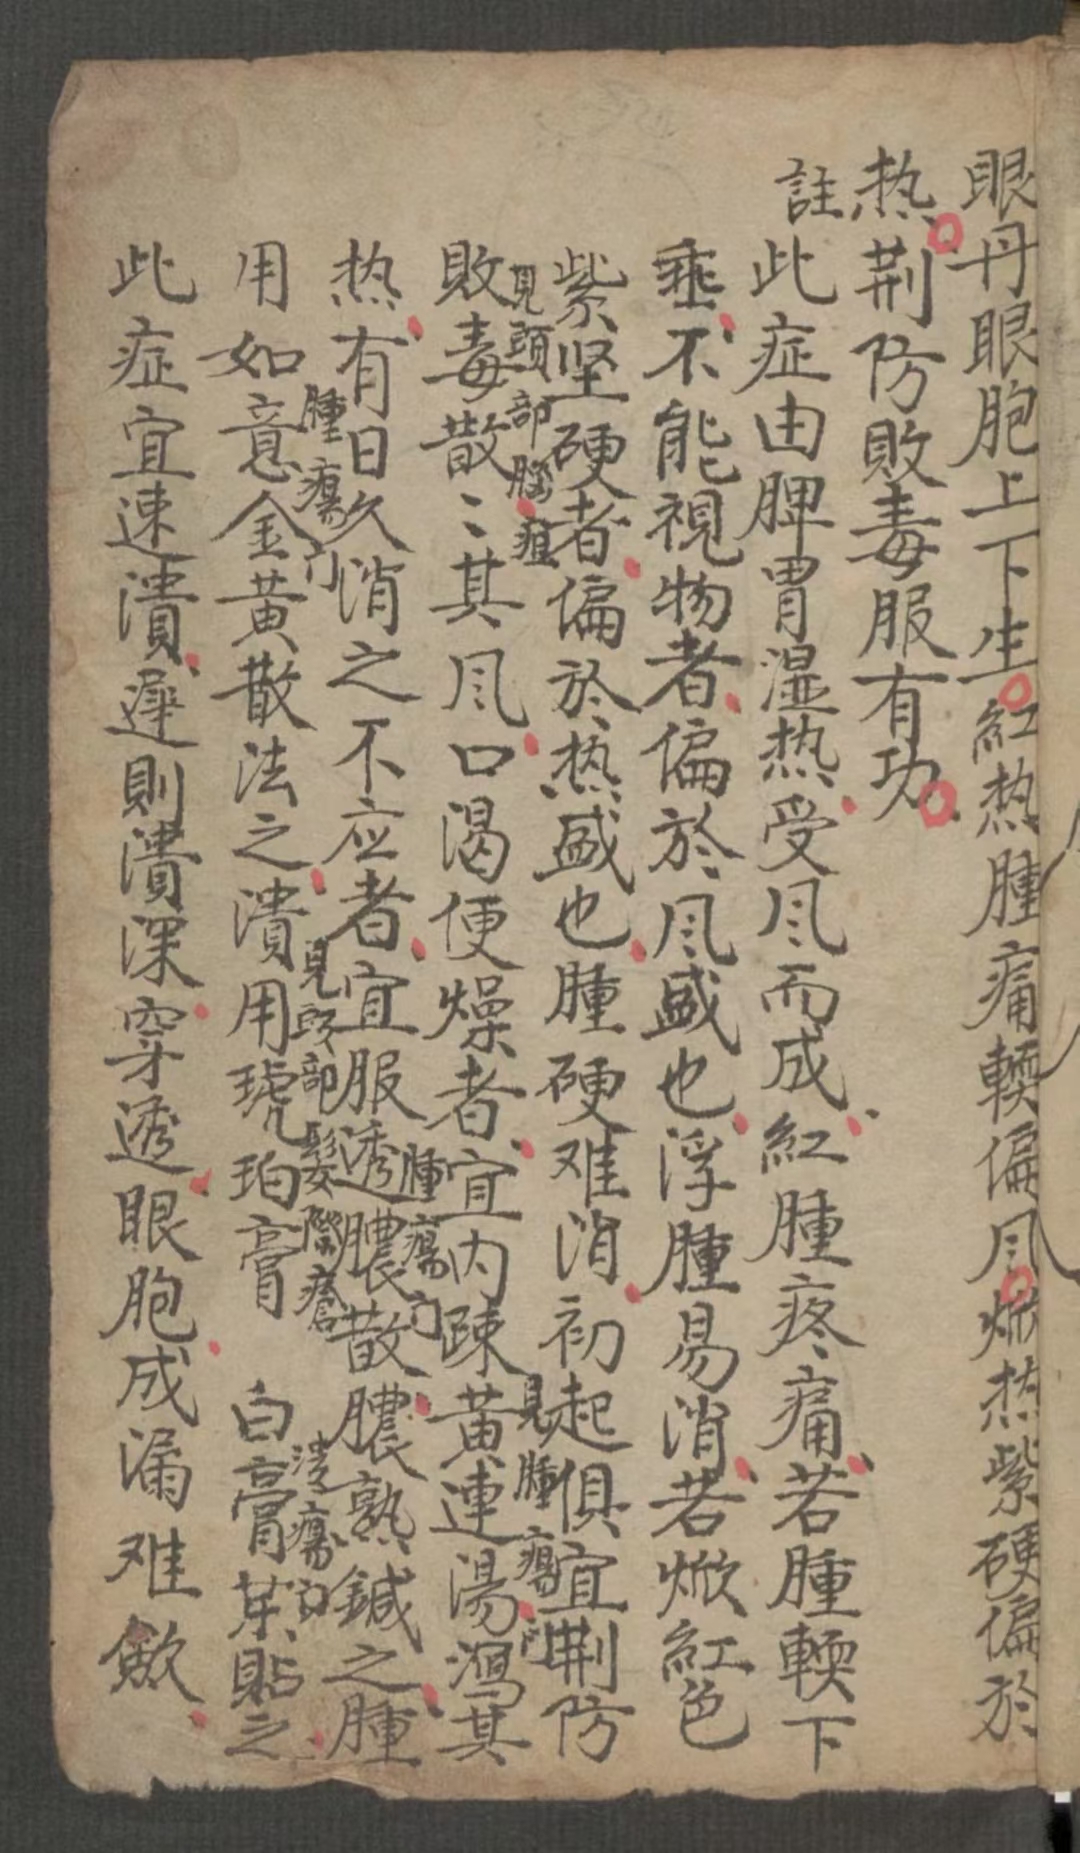 眼丹眼胞上下生紅热腫痛輭偏风焮热紫硬偏於
热荆防敗毒服有功
註此症由脾胃湿热受风而成紅腫疼痛若腫輭下
垂不能視物者偏於风盛也浮腫易消若焮紅色
紫坚硬者偏於热盛也腫硬难消初起俱宜荆防
見頭部腦疽
見腫瘍門
敗毒散〻其风口渴便燥者宜内疎黄連湯瀉其
腫瘍門
热有日久消之不应者宜服透膿散膿熟鍼之腫
腫瘍門
見頭部髮際瘡
潰瘍門
用如意金黄散法之潰用琥珀膏 白膏茶貼之
此症宜速潰遲則潰深穿透眼胞成漏难歛